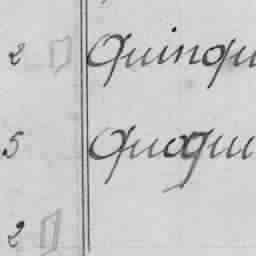 2 Quinqu
5 Quaqui
2